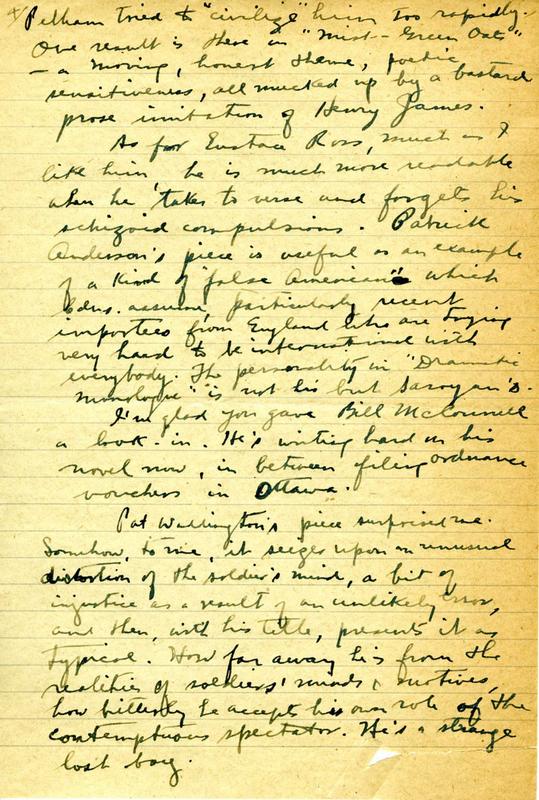 4/ Pelham tried to "civilize" him too rapidly.
One result is there in "Mist-Green Oats"
— a moving, honest theme, poetic
sensitiveness, all mucked up by a bastard
prose imitation of Henry James.
As for Eustace Ross, much as I
like him he is much more readable
when he takes to verse and forgets his
schizoid compulsions. Patrick
Anderson's piece is useful as an example
of a kind of "false American" which
Cdns. assume, particularly recent
importees from England who are trying
very hard to be international with
everybody. The personality in "Dramatic
Monologue" is not his but Saroyan's.
I'm glad you gave Bill McConnell
a look-in. He's writing hard on his
novel now, in between filing ordnance
vouchers in Ottawa.
Pat Waddington's piece surprised me.
Somehow, to me, it seizes upon an unusual
distortion of the soldier's mind, a bit of
injustice as a result of an unlikely error,
and then, with his title, presents it as
typical. How far away he is from the
realities of soldiers' minds & motives,
how bitterly he accepts his own role of the
contemptuous spectator. He's a strange
lost boy.